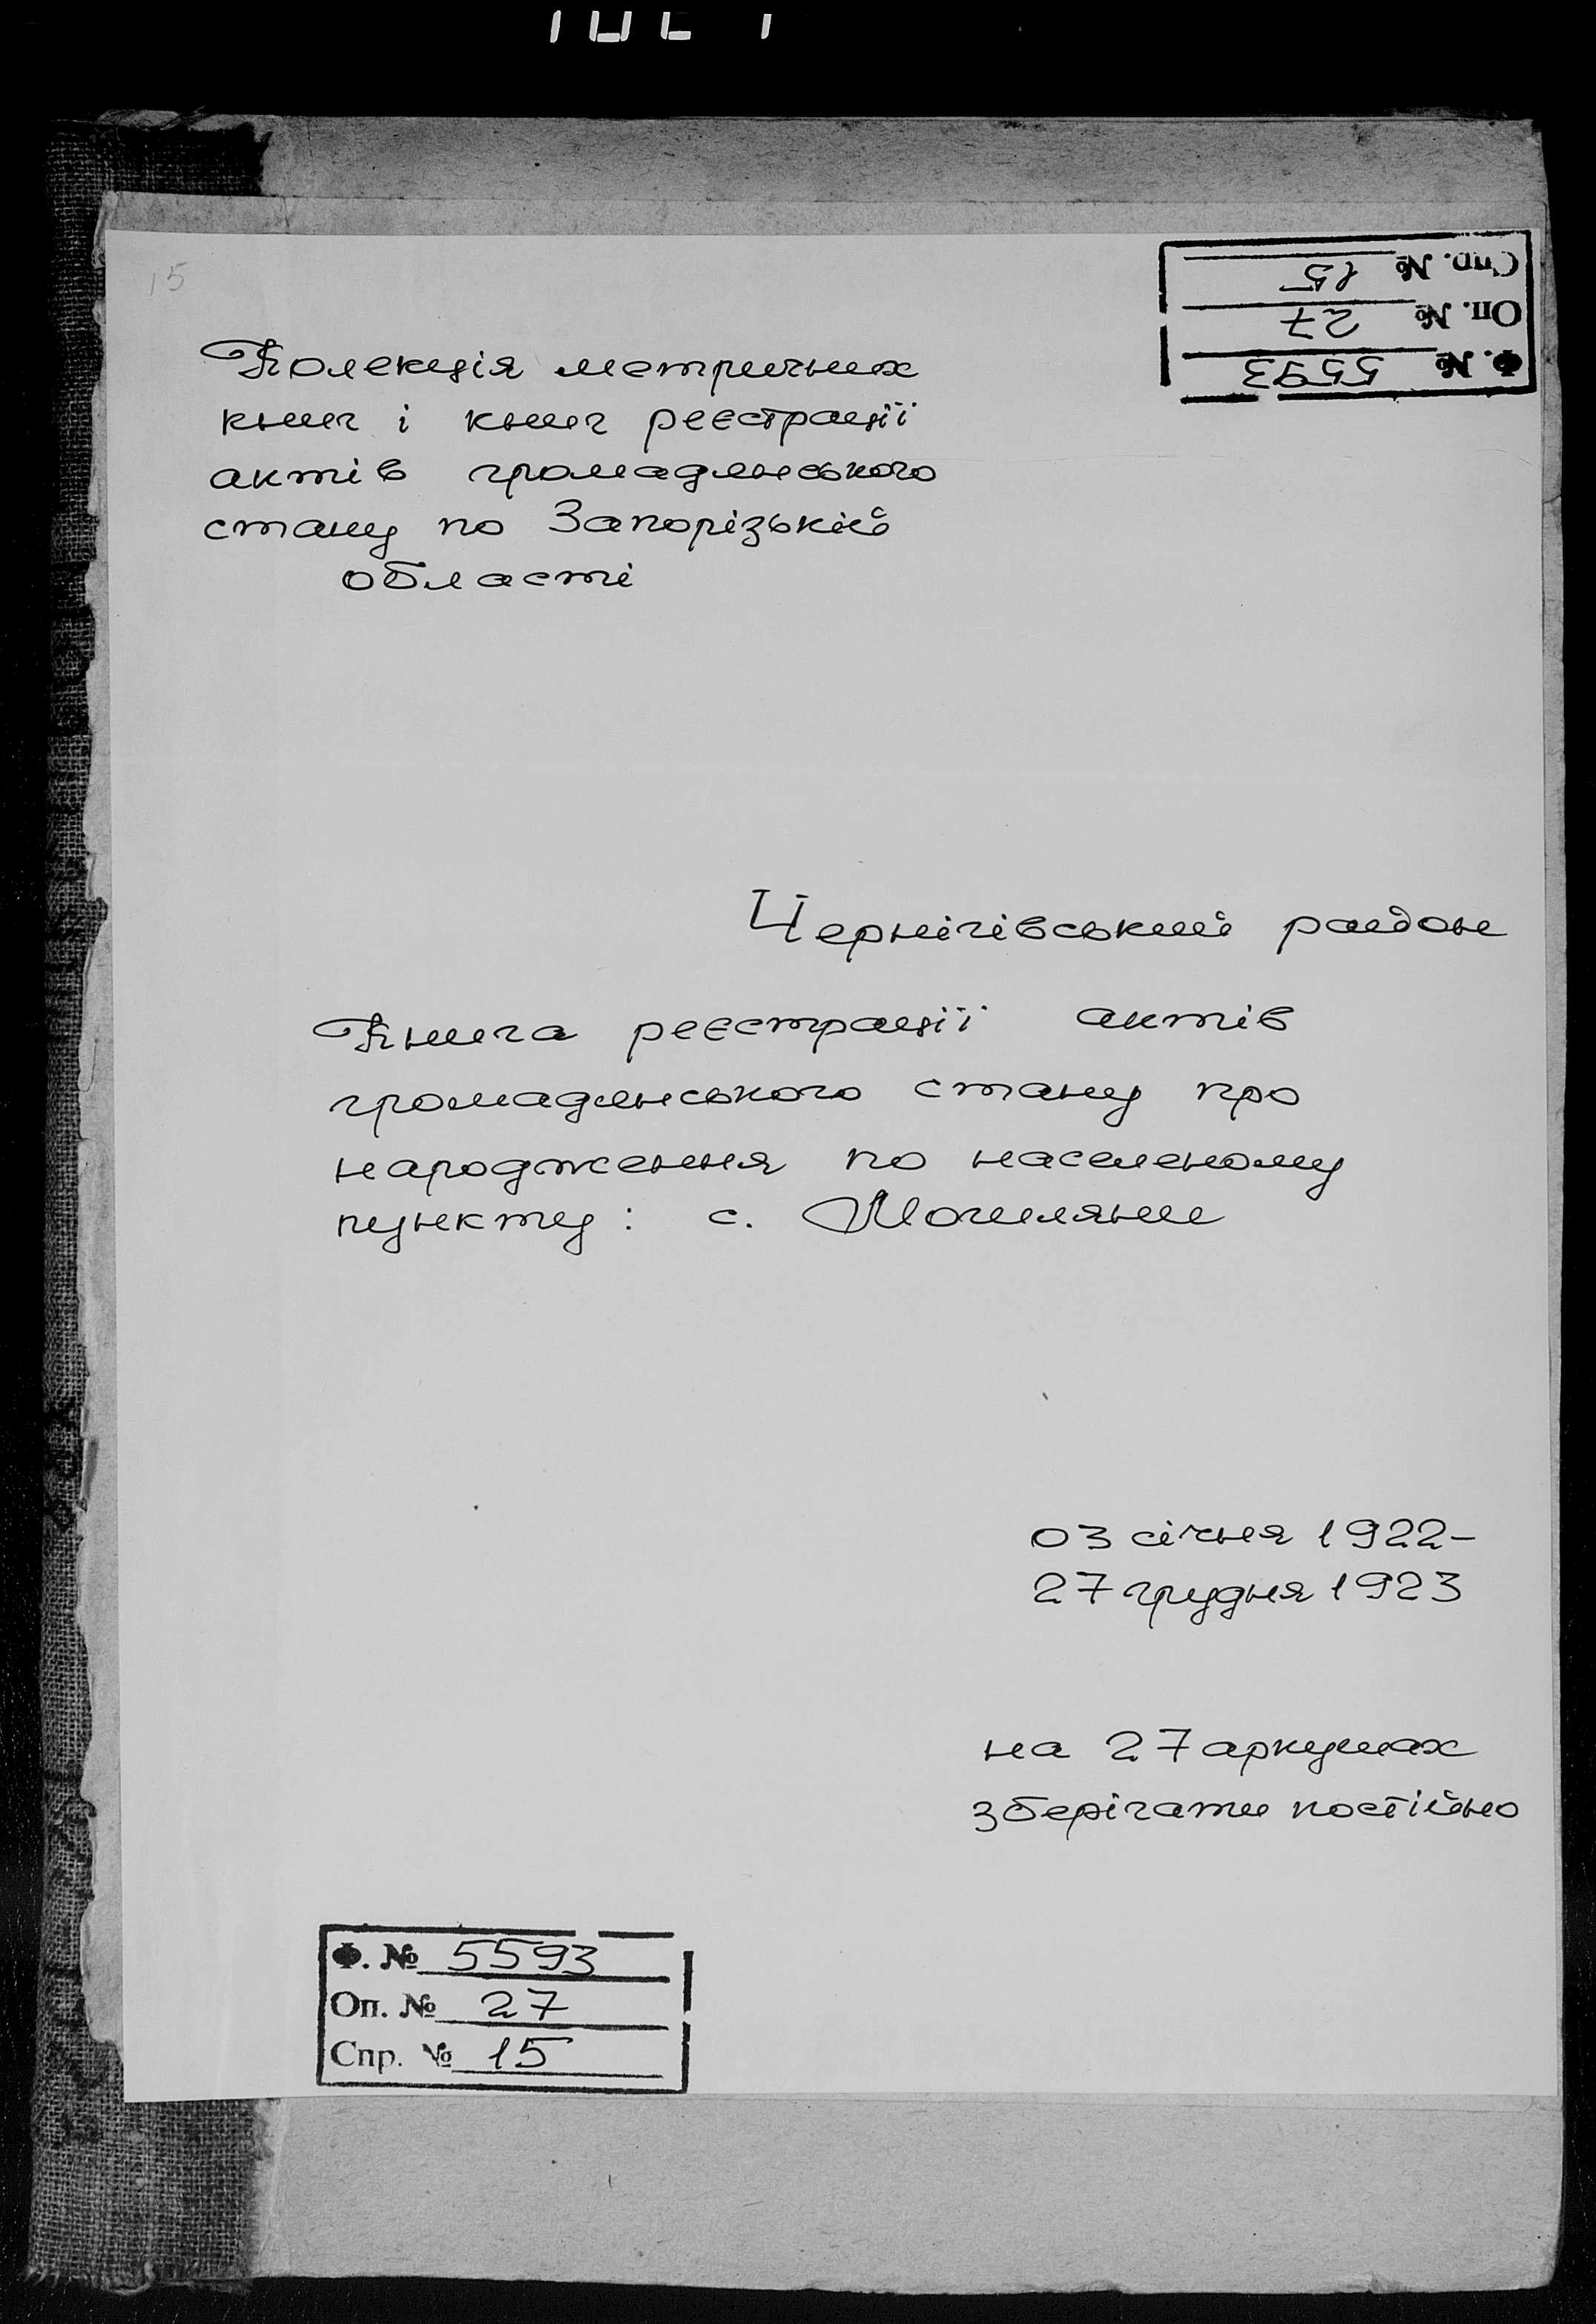 15
Спр. № 15
Оп. № 27
Ф. № 5593
Колекція метричних
книг і книг реєстрації
актів громадянського
стану по Запорізькій
області
Чернігівський район
Книга реєстрації актів
громадянського стану про
народження по населеному
пункту: с. Могиляни
03 січня 1922-
27 грудня 1923
на 27 аркушах
зберігати постійно
Ф. № 5593
Оп. № 27
Спр. № 15